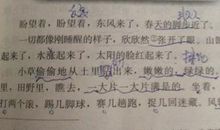 盼望着，盼望着，东风来了，春天的脚步近了。
一切都像刚睡醒的样子，欣欣然张开了眼。山
起来了，水涨起来了，太阳的脸红起来了。
小草偷偷地从土里钻出来，嫩嫩的，绿绿的。
里，田野里，瞧去，一大片一大片满是的。坐着，
打两个滚，踢几脚球，赛几趟跑，捉几回迷藏。风